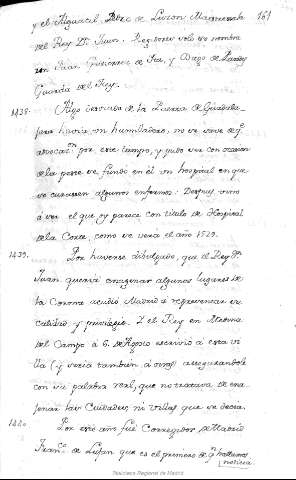 161
y el Alguacil, Pedro de Luzon Maestresala
del Rey Dn. Juan. Regidores solo se nombra
un Juan Gutierrez de y Diego de Paredes
Guarda del Rey.
1438. Algo desviada de la Puerta de Guadala-
jara havia un humilladero, no se save de q.e
advocaon. por este tiempo, y pudo ser con ocasion
de la peste se fundo en él un hospital en que
se curassen algunos enfermos: Despues vino
á ser el que oy parece con titulo de Hospital
de la Corte, como se vera el año 1529.
1439. Por haverse divulgado, que el Rey Dn.
Juan queria enagenar algunos lugares de
la Corona acudio Madrid a representar su
calidad y privilegio. Y el Rey en Medina
del Campo à 6. de Agosto escrivió a esta vi-
lla (y seria tambien à otras) assegurandole
con su palabra real, que no tratava de ena-
jenar las Ciudades, ni Villas que se decia.
1440. Por este año fué Corregidor de Madrid
Franco. de Luxan que es el primero de q.e hallamos
noticia.
Biblioteca Regional de Madrid